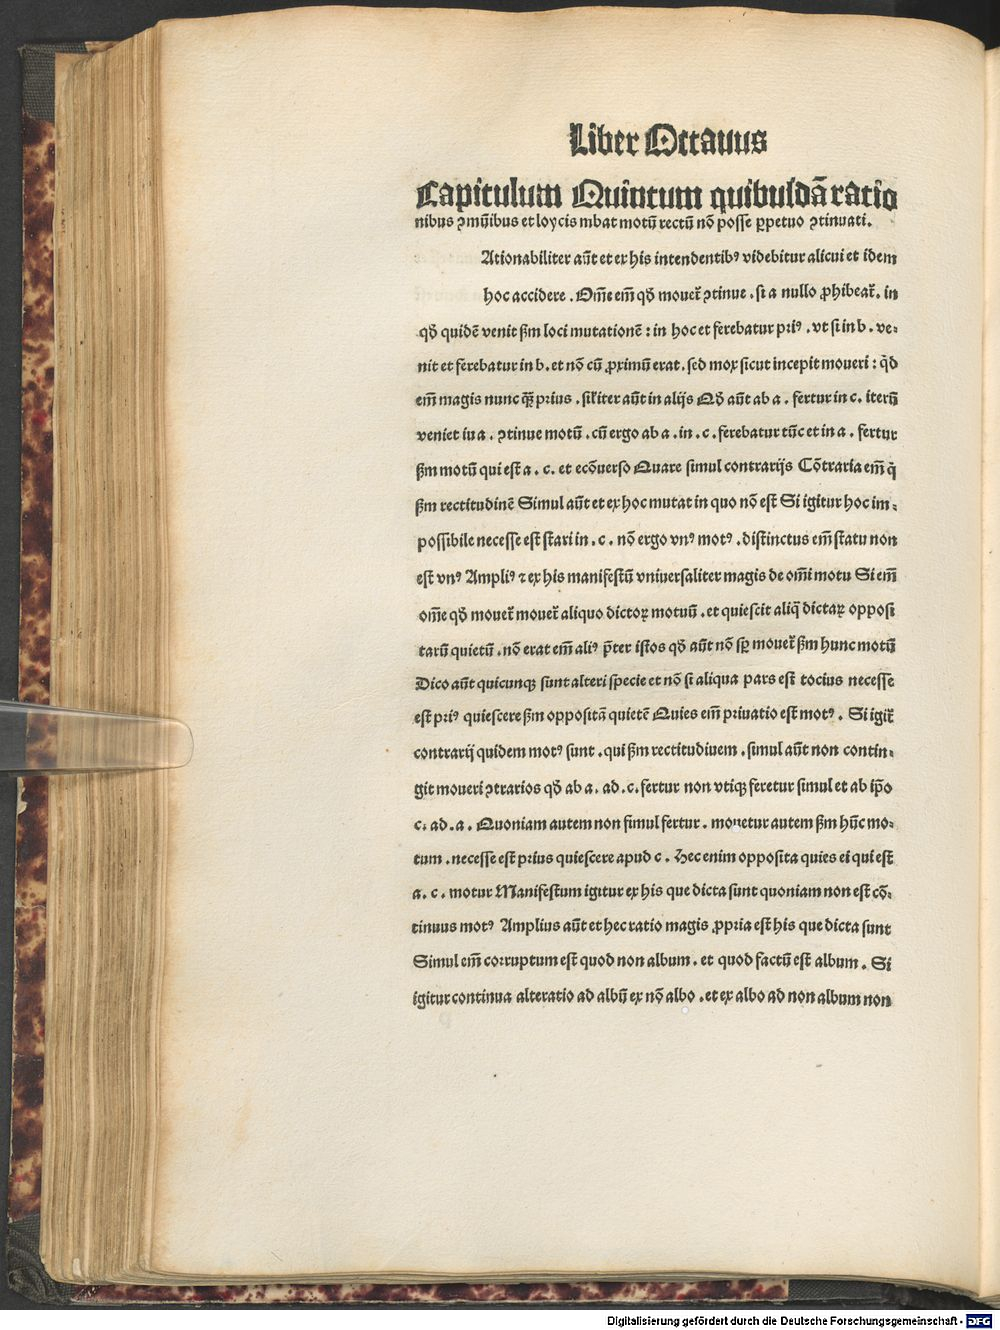 Liber Octauus
Capitulum Quintum quibusdā ratio
nibus ꝯmūibus et loycis mbat motū rectū nō posse ꝑpetuo ꝯtinuati.
Ationabiliter aūt et ex his intendentibꝰ videbitur alicui et idem
hoc accidere . Om̄e em̄ qd̄ mouet̄ ꝯtinue . si a nullo ꝓhibeat̄ . in
qd̄ quidē venit ẜm loci mutationē : in hoc et ferebatur priꝰ . vt si in b . ve⸗
nit et ferebatur in b . et nō cū ꝓximū erat . sed mox sicut incepit moueri : qͥd
em̄ magis nunc qͣꝫ prius . sil̄iter aūt in alijs Qd̄ aūt ab a . fertur in c . iterū
veniet iu a . ꝯtinue motū . cū ergo ab a . in . c . ferebatur tūc et in a . fertur
ẜm motū qui est a . c . et ecōuerso Quare simul contrarijs Cōtraria em̄ q̄
ẜm rectitudinē Simul aūt et ex hoc mutat in quo nō est Si igitur hoc im⸗
possibile necesse est stari in . c . nō ergo vnꝰ motꝰ . distinctus em̄ statu non
est vnꝰ Ampliꝰ ⁊ ex his manifestū vniuersaliter magis de om̄i motu Si em̄
om̄e qd̄ mouet̄ mouet̄ aliquo dictoꝝ motuū . et quiescit aliq̄ dictaꝝ opposi
tarū quietū . nō erat em̄ aliꝰ p̄ter istos qd̄ aūt nō sꝑ mouet̄ ẜm hunc motū
Dico aūt quicunqꝫ sunt alteri specie et nō si aliqua pars est tocius necesse
est priꝰ quiescere ẜm oppositā quietē Quies em̄ priuatio est motꝰ . Si igit̄
contrarij quidem motꝰ sunt . qui ẜm rectitudiuem . simul aūt non contin⸗
git moueri ꝯtrarios qd̄ ab a . ad . c . fertur non vtiqꝫ feretur simul et ab ip̄o
c . ad . a . Quoniam autem non simul fertur . mouetur autem ẜm hūc mo⸗
tum . necesse est prius quiescere apud c . Hec enim opposita quies ei qui est
a . c . motur Manifestum igitur ex his que dicta sunt quoniam non est cō⸗
tinuus motꝰ Amplius aūt et hec ratio magis ꝓpria est his que dicta sunt
Simul em̄ corruptum est quod non album . et quod factū est album . Si
igitur continua alteratio ad albū ex nō albo . et ex albo ad non album non
Digitalisierung gefördert durch die Deutsche Forschungsgemeinschaft - DFG